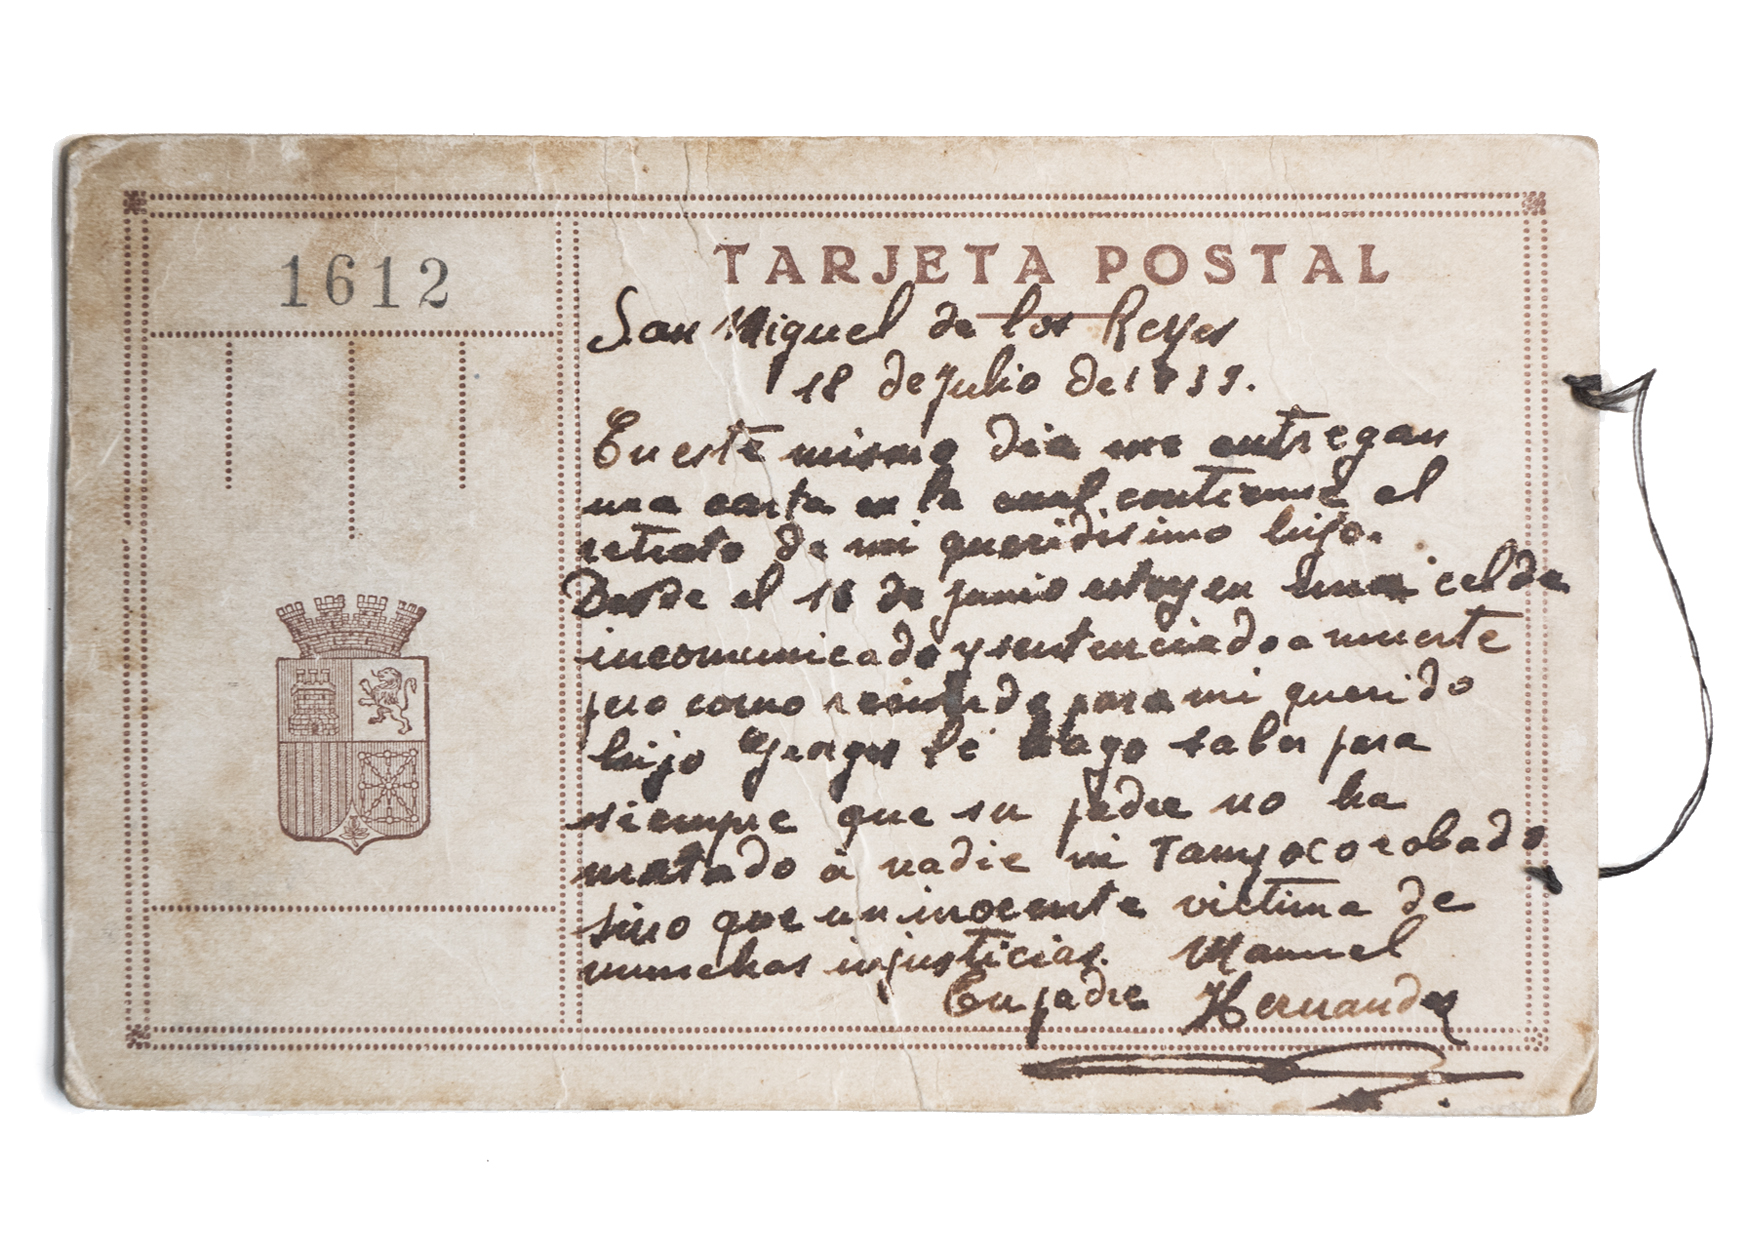 1612
TARJETA POSTAL
San Miguel de los Reyes
18 de Julio de 1939.
En este mismo dia me entregan
una carta en la cual contiene el
retrato de mi queridisimo hijo.
Desde el 18 de junio estoy en una celda
incomunicado y sentenciado a muerte
pero como recuerdo para mi querido
hijo le hago saber para
siempre que su padre no ha
matado a nadie ni Tampoco robado
sino que un inocente victima de
munchas injusticias. Manuel
Tu padre Hernandez